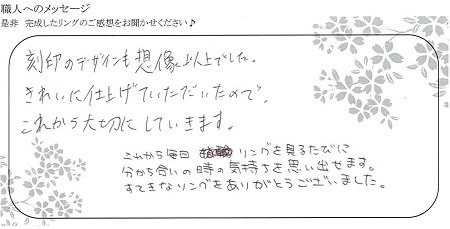 職人へのメッセージ
是非 完成したリングのご感想をお聞かせください♪
刻印のデザインも想像以上でした。
きれいに仕上げていただいたので、
これから大切にしていきます。
これから毎日 リングを見るたびに
分かち合いの時の気持ちを思い出せます。
すてきなリングをありがとうございました。